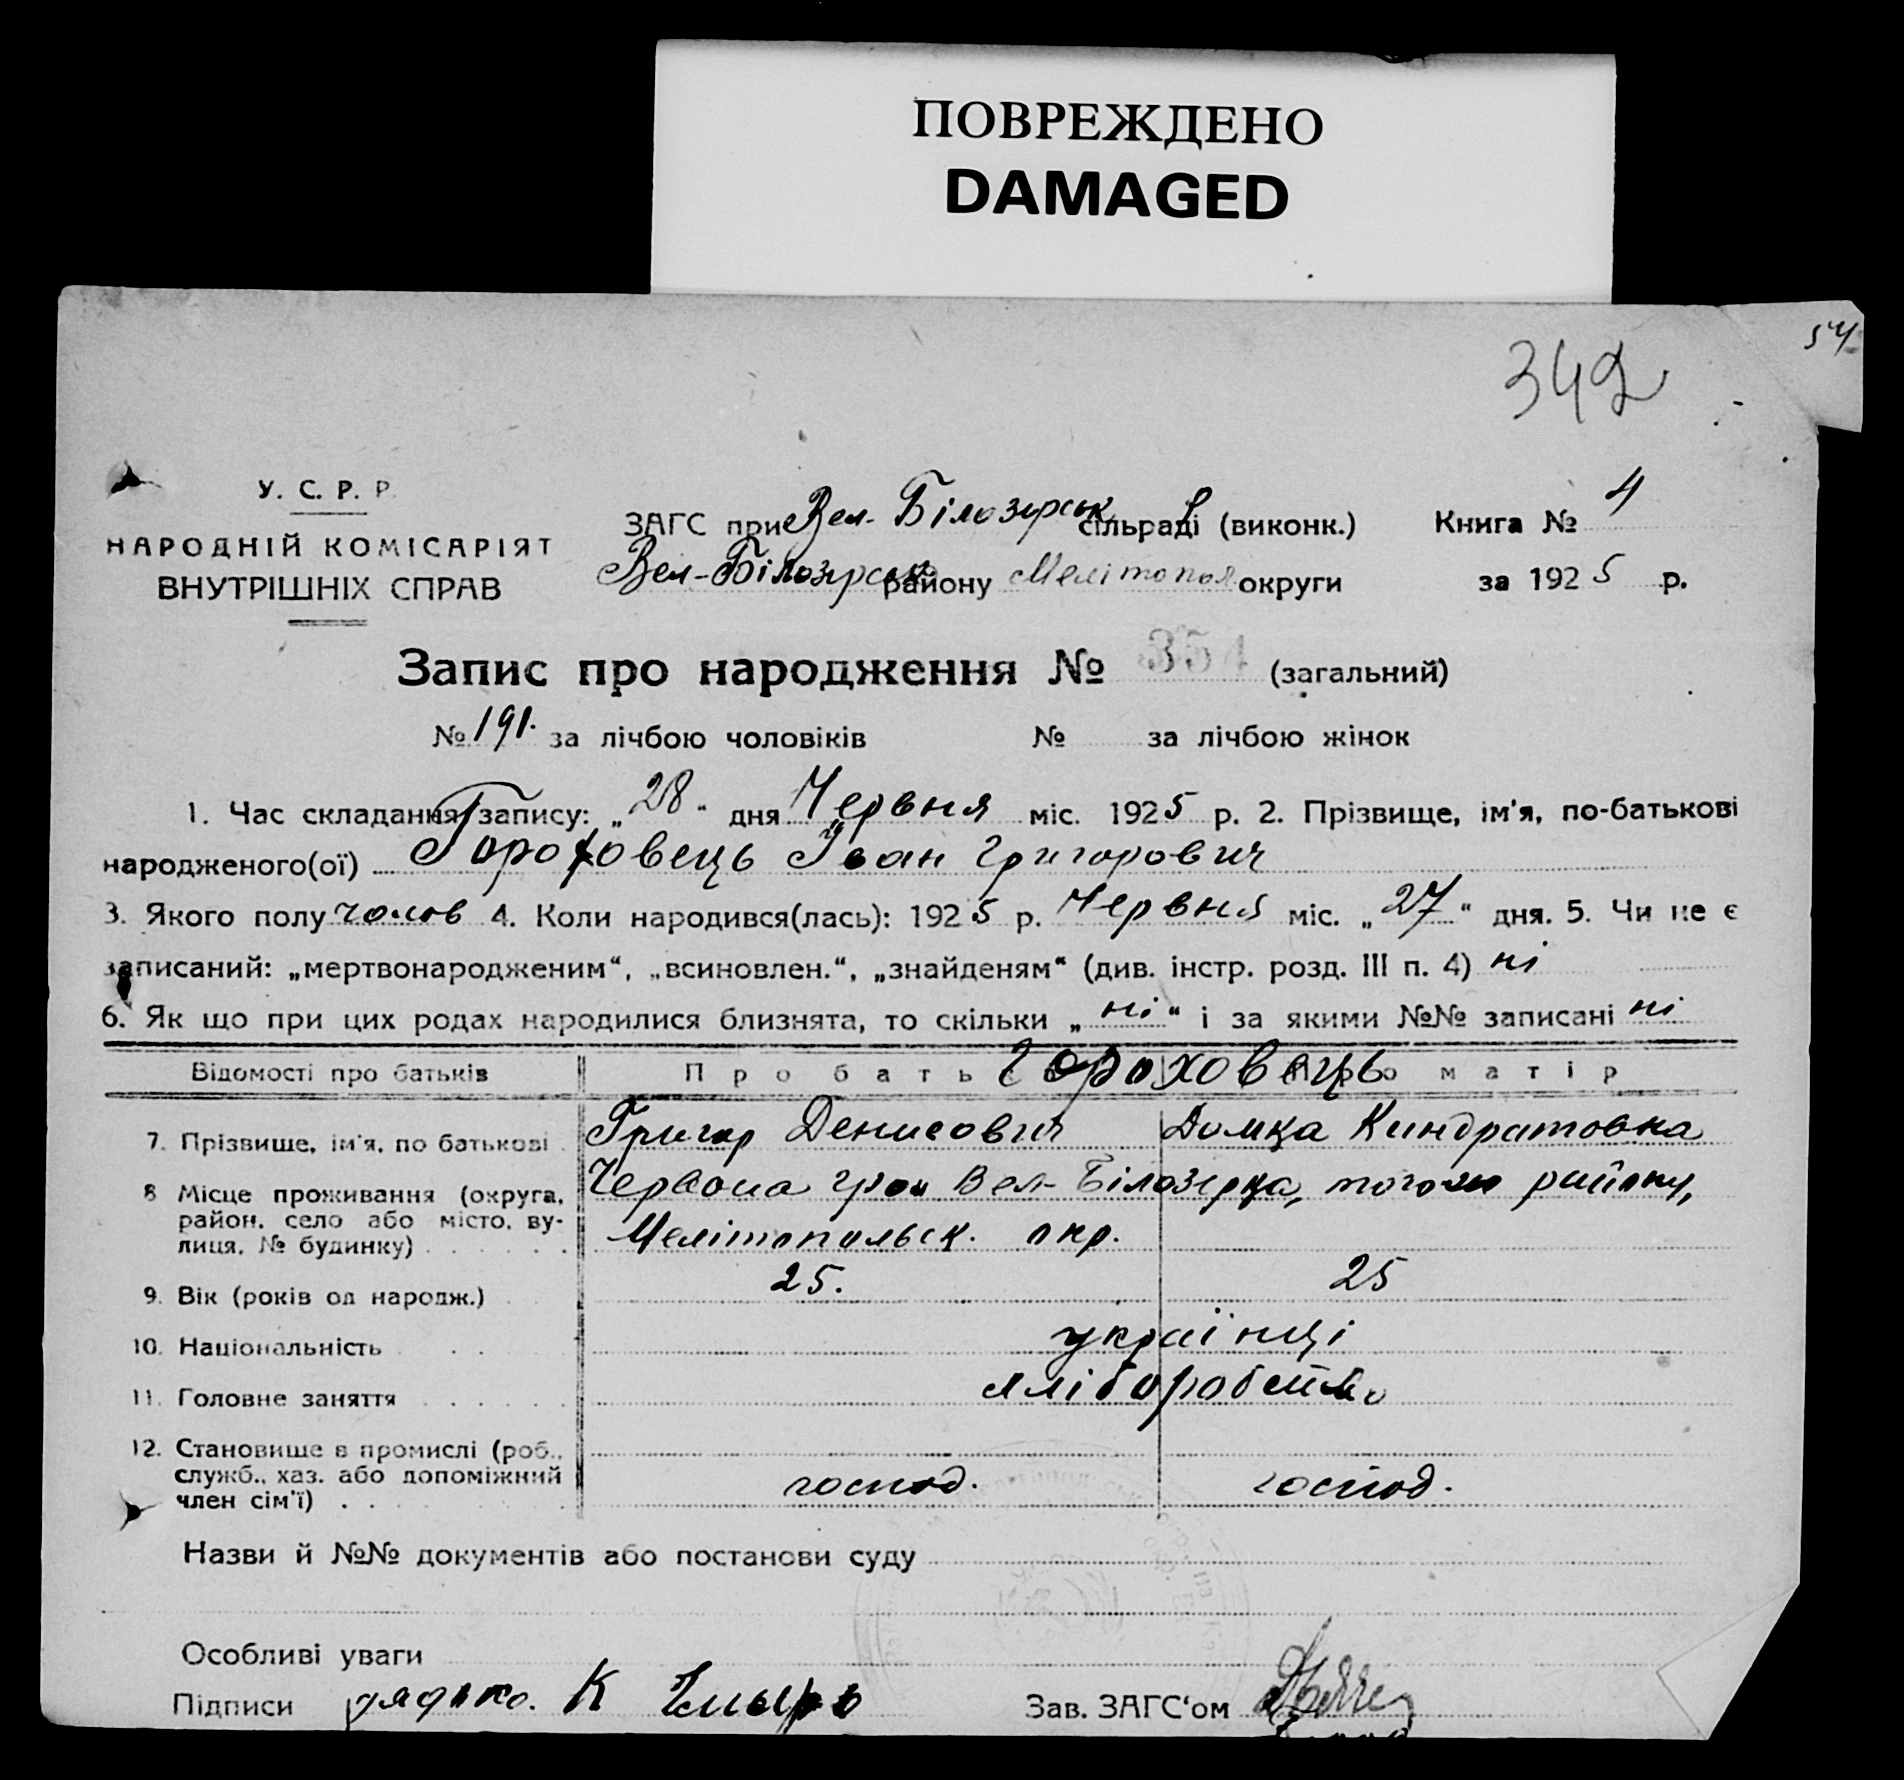 ПОВРЕЖДЕНО
DAMAGED
54
342
У. С. Р. Р.
НАРОДНІЙ КОМІСАРІЯТ
ВНУТРІШНІХ СПРАВ
ЗАГС при Вел-Білозірськ сільраді (виконк.) Книга № 4
Вел-Білозірськ району Мелітопол округи за 1925 р.
Запис про народження № 354 (загальний)
№ 191. за лічбою чоловіків № за лічбою жінок
1. Час складання запису: „28“ дня Червня міс. 1925 р. 2. Прізвище, ім'я, по-батькові
народженого(ої) Гороховець Іван Григорович
3. Якого полу чолов 4. Коли народився(лась): 1925 р. Червня міс. „27“ дня. 5. Чи не є
записаний: „мертвонародженим“, „всиновлен.“, „знайденям“ (див. інстр. розд. III п. 4) ні
6. Як що при цих родах народилися близнята, то скільки „ні“ і за якими №№ записані ні
Відомості про батьків Про батька Про матір
Гороховець
7. Прізвище, ім'я, по батькові Григор Денисович Домка Киндратовна
8 Місце проживання (округа, район, село або місто, вулиця, № будинку) Червона Вел-Білозірка, того-ж району,
Мелітопольськ. окр.
9. Вік (років од народж.) 25. 25
10. Національність українці
11. Головне заняття хліборобство
12. Становище в промислі (роб., служб., хаз. або допоміжний член сім'ї) господ. господ.
Назви й №№ документів або постанови суду
Особливі уваги
Підписи К Зав. ЗАГС'ом